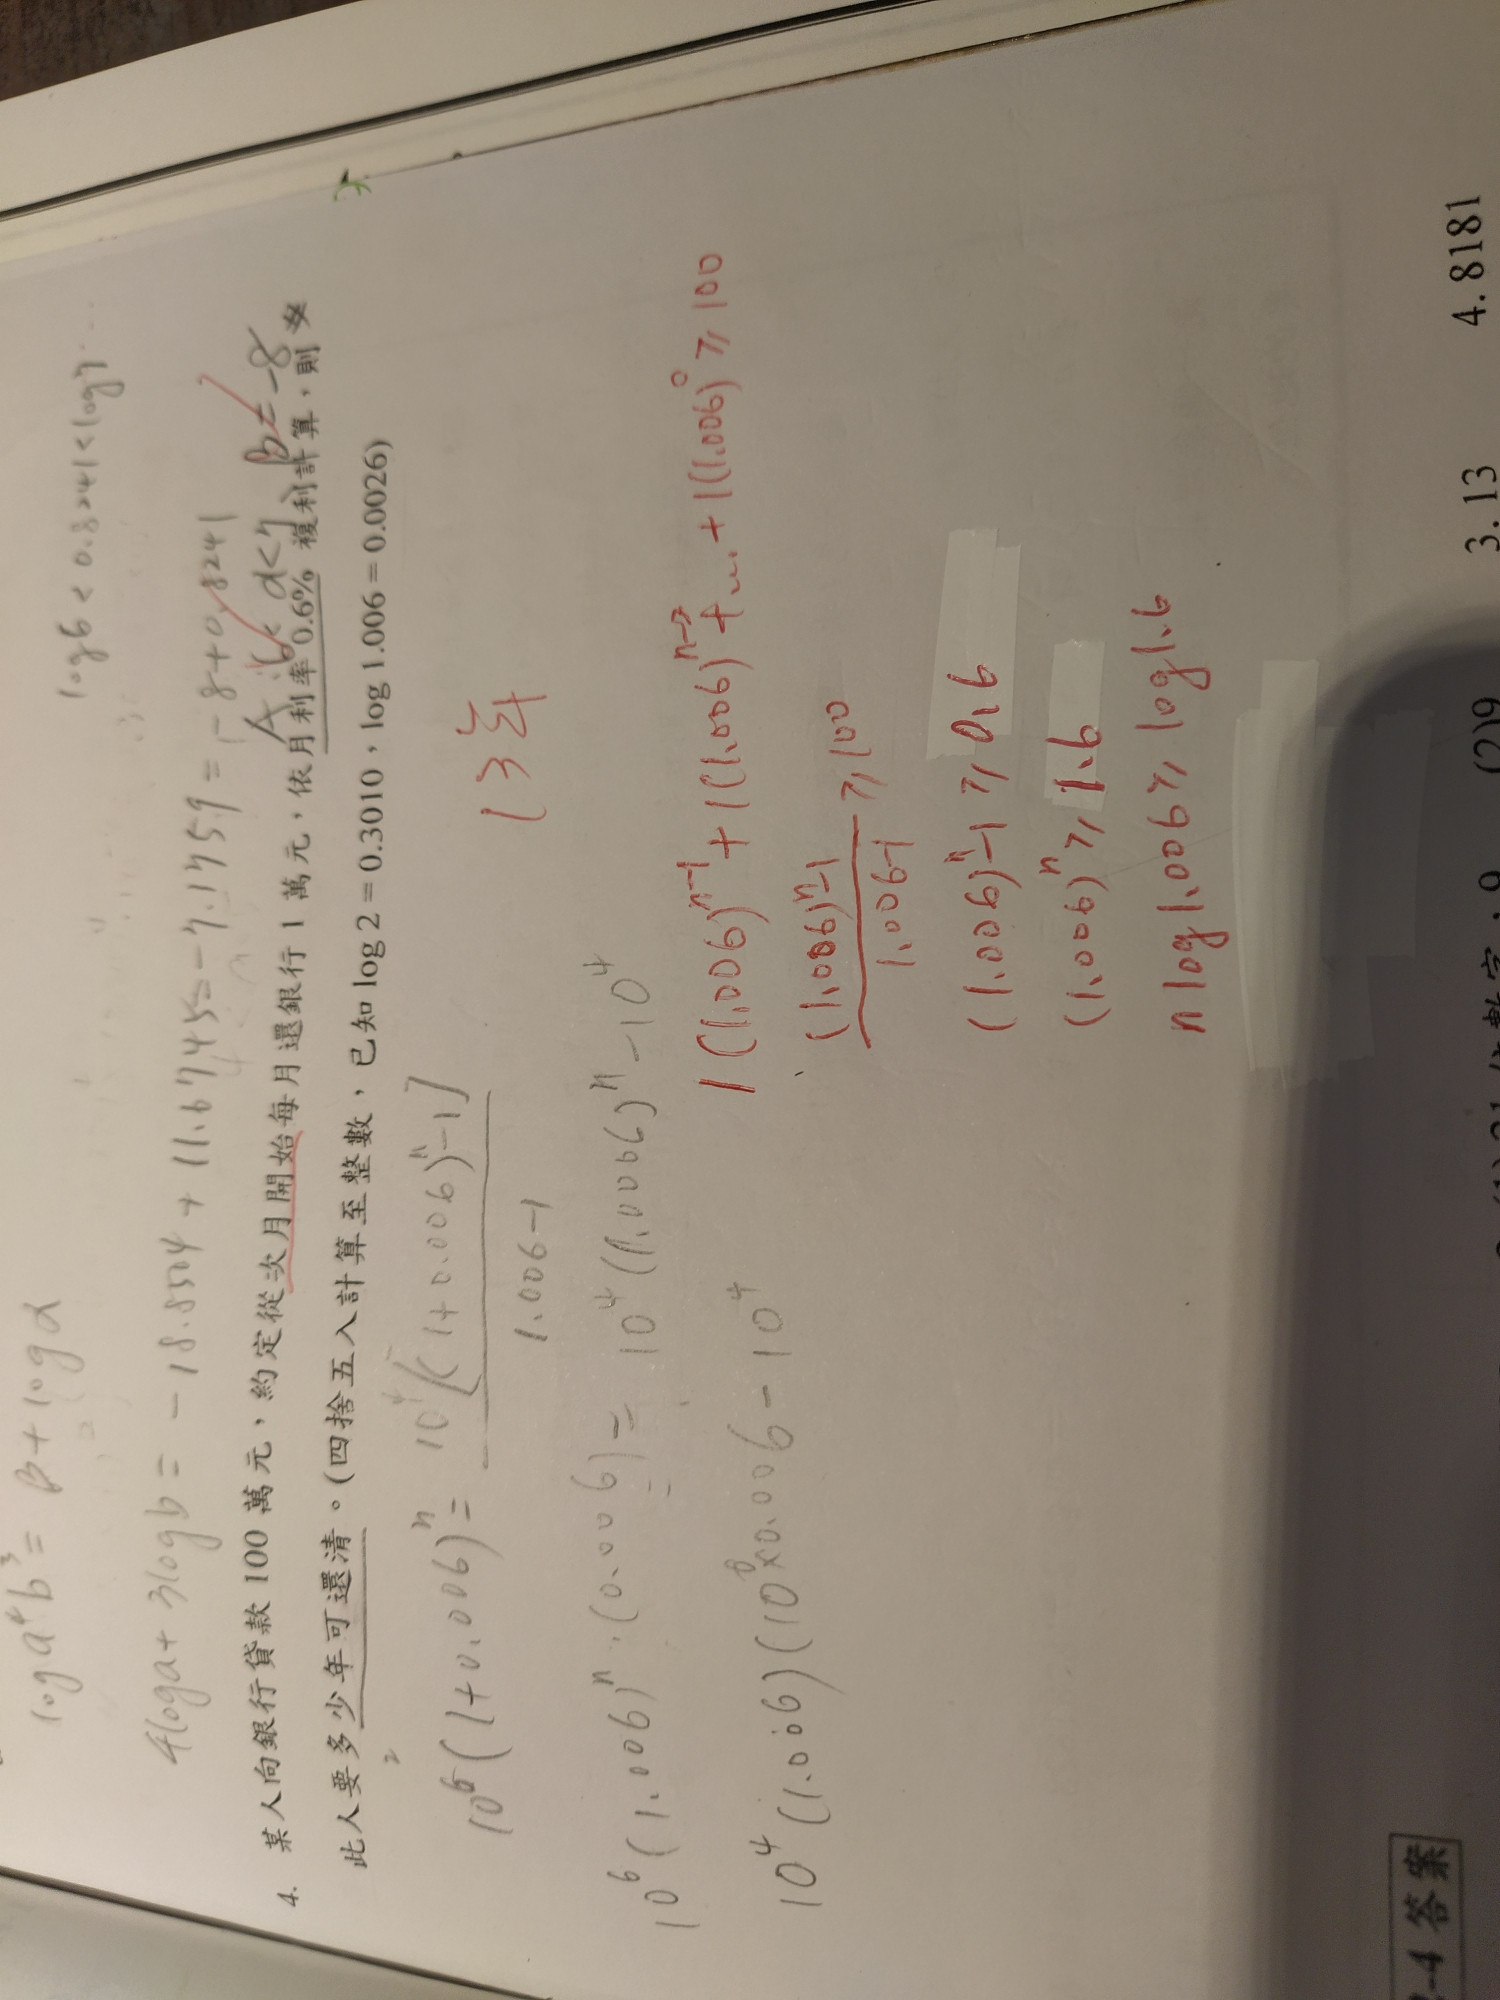 log a⁴b³ = β + log α
log 6 < 0.8241 < log 7
4log a + 3log b = -18.8504 + 11.6745 = -7.1759 = -8 + 0.8241
A 6 < α < 7 β = -8
4. 某人向銀行貸款 100 萬元，約定從次月開始每月還銀行 1 萬元，依月利率 0.6% 複利計算，則
此人要多少年可還清。(四捨五入計算至整數，已知 log 2 = 0.3010，log 1.006 = 0.0026)
10⁶(1+0.006)ⁿ = 10⁴[(1+0.006)ⁿ-1]
1.006-1
13年
10⁶(1.006)ⁿ·(0.006) = 10⁴(1.006)ⁿ-10⁴
1(1.006)ⁿ⁻¹+1(1.006)ⁿ⁻²+...+1(1.006)⁰ ≥ 100
(1.006)ⁿ-1 ≥ 100
1.006-1
(1.006)ⁿ-1 ≥ 0.6
(1.006)ⁿ ≥ 1.6
n log 1.006 ≥ log 1.6
-4 答案
(2)9
3. 13
4. 8181